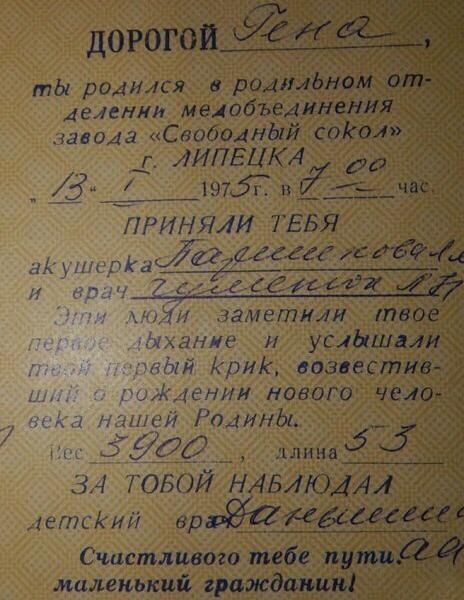 ДОРОГОЙ Гена,
ты родился в родильном от-
делении медобъединения
завода «Свободный сокол»
г. ЛИПЕЦКА
„13" I 1975г. в 7 00 час.
ПРИНЯЛИ ТЕБЯ
акушерка
и врач
Эти люди заметили твое
первое дыхание и услышали
твой первый крик, возвестив-
ший о рождении нового чело-
века нашей Родины.
Вес 3900, длина 53
ЗА ТОБОЙ НАБЛЮДАЛ
детский врач
Счастливого тебе пути,
маленький гражданин!